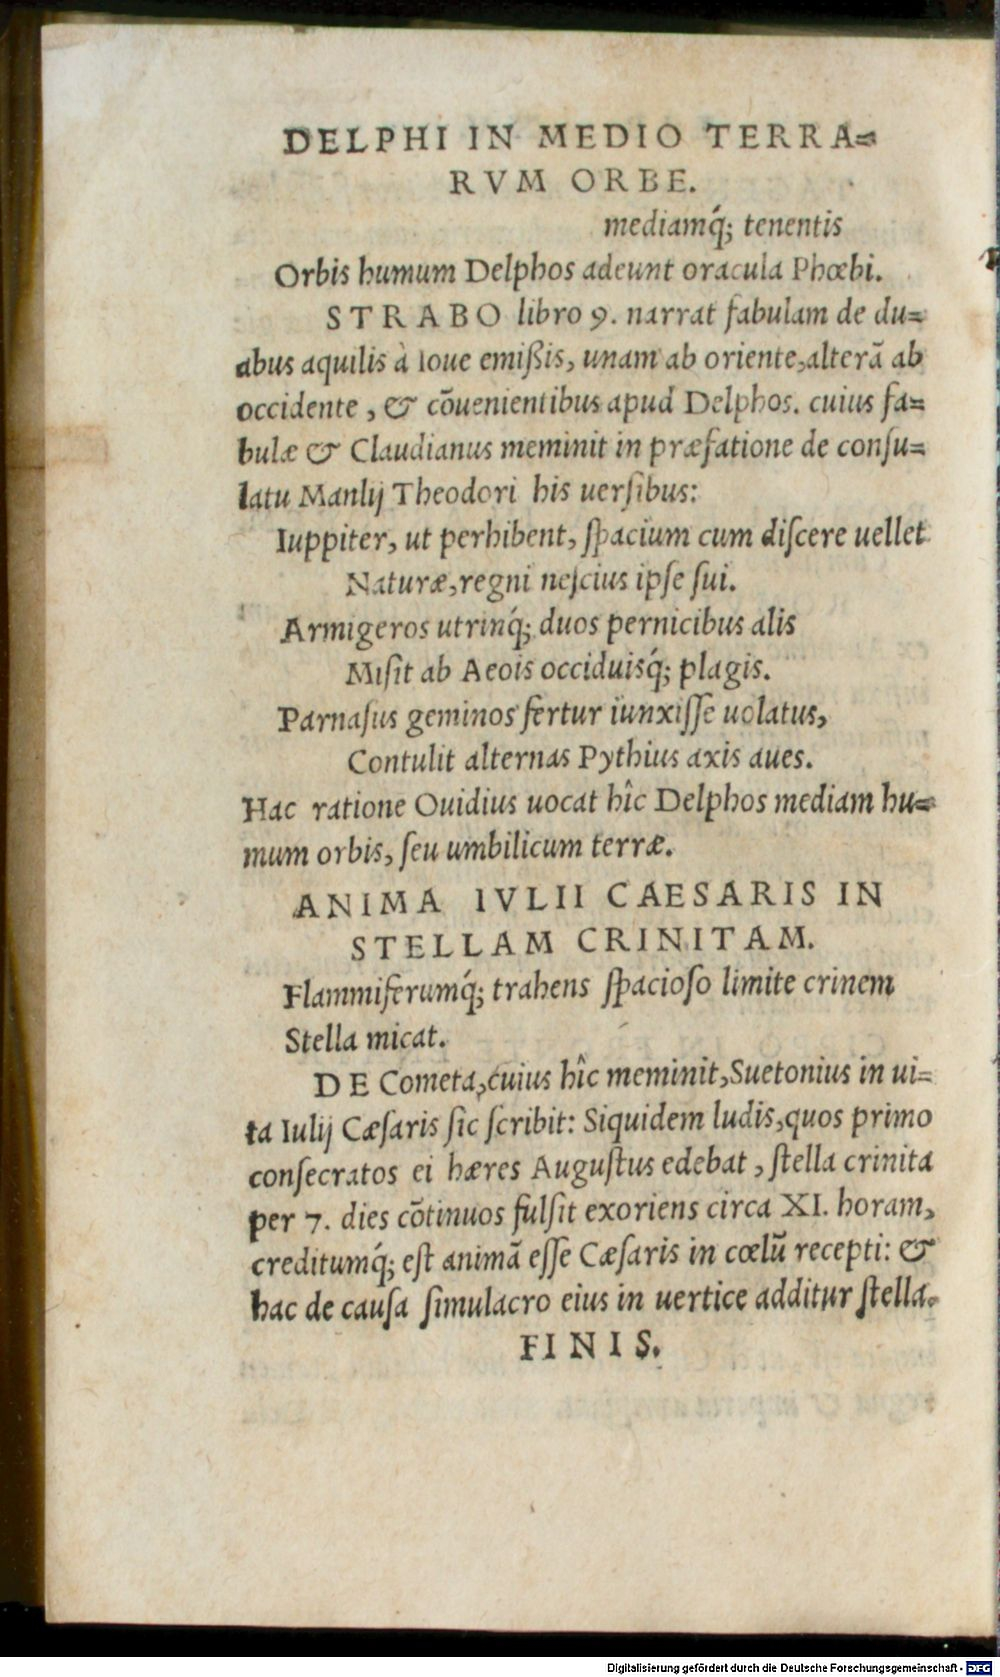 DELPHI IN MEDIO TERRA=
RVM ORBE.
mediamq́; tenentis
Orbis humum Delphos adeunt oracula Phœbi.
STRABO libro 9. narrat fabulam de du=
abus aquilis à Ioue emißis, unam ab oriente, alterā ab
occidente, & cōuenientibus apud Delphos. cuius fa=
bulæ & Claudianus meminit in præfatione de conſu=
latu Manlij Theodori his uerſibus:
Iuppiter, ut perhibent, ſpacium cum diſcere uellet
Naturæ, regni neſcius ipſe ſui.
Armigeros utrinq́; duos pernicibus alis
Miſit ab Aeois occiduisq́; plagis.
Parnaſus geminos fertur iunxiſſe uolatus,
Contulit alternas Pythius axis aues.
Hac ratione Ouidius uocat hîc Delphos mediam hu=
mum orbis, ſeu umbilicum terræ.
ANIMA IVLII CAESARIS IN
STELLAM CRINITAM.
Flammiferumq́; trahens ſpacioſo limite crinem
Stella micat.
DE Cometa, cuius hîc meminit, Suetonius in ui=
ta Iulij Cæſaris ſic ſcribit: Siquidem ludis, quos primo
conſecratos ei hæres Auguſtus edebat, ſtella crinita
per 7. dies cōtinuos fulſit exoriens circa XI. horam,
creditumq́; eſt animā eſſe Cæſaris in cœlū recepti: &
hac de cauſa ſimulacro eius in uertice additur ſtella.
FINIS.
Digitalisierung gefördert durch die Deutsche Forschungsgemeinschaft - DFG